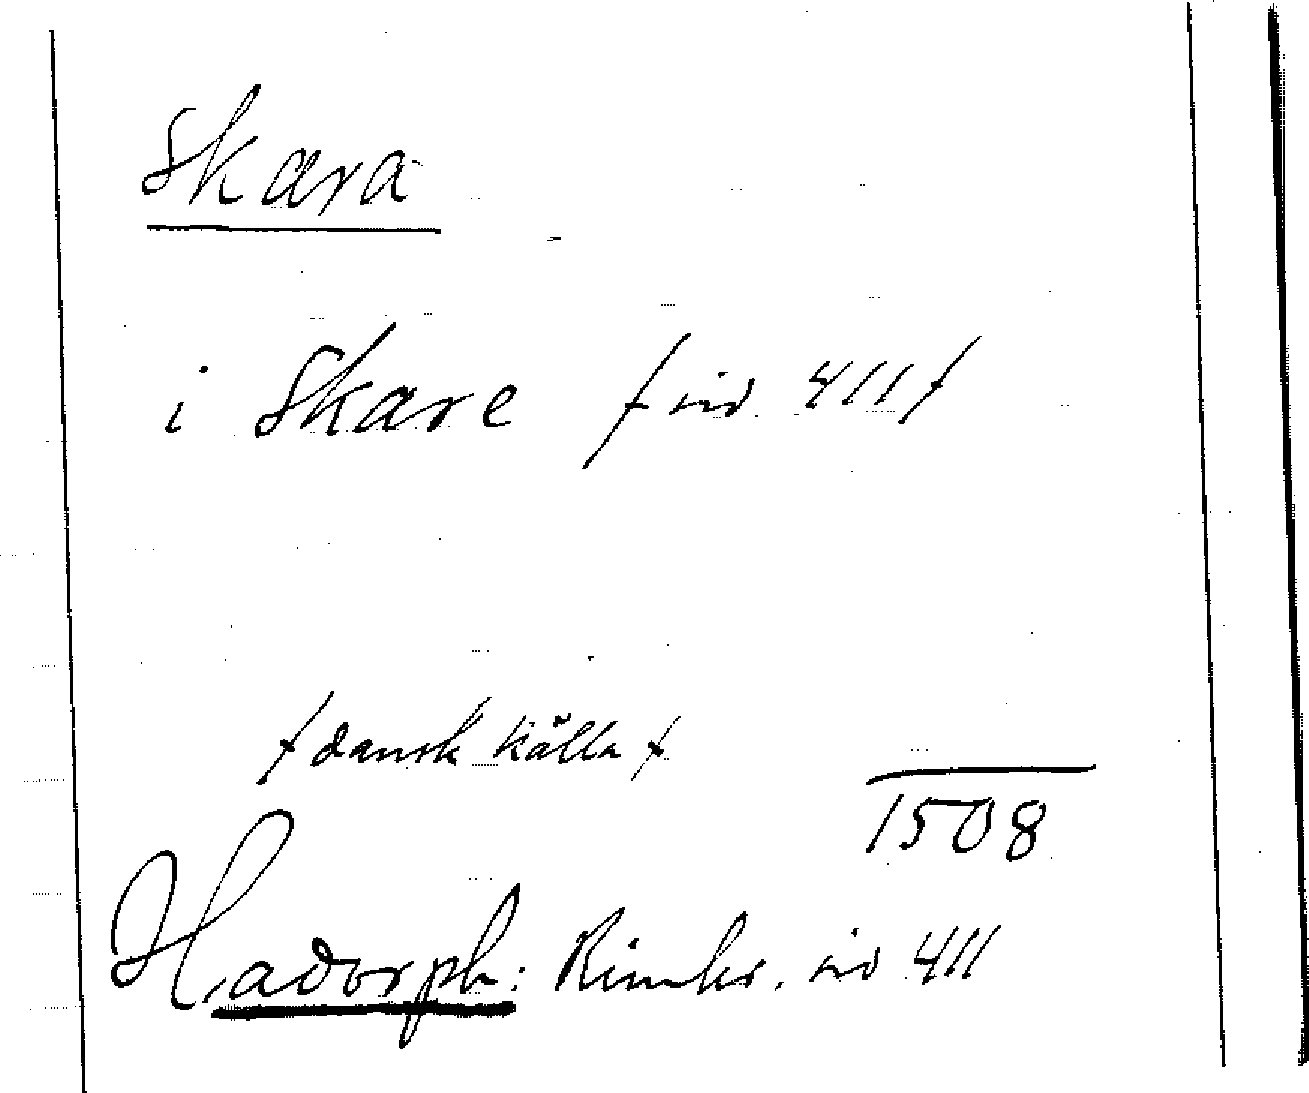 Skara
i Skare / sid 411 /
/ dansk källa /
1508
Hadorph: Rimkr. sid 411